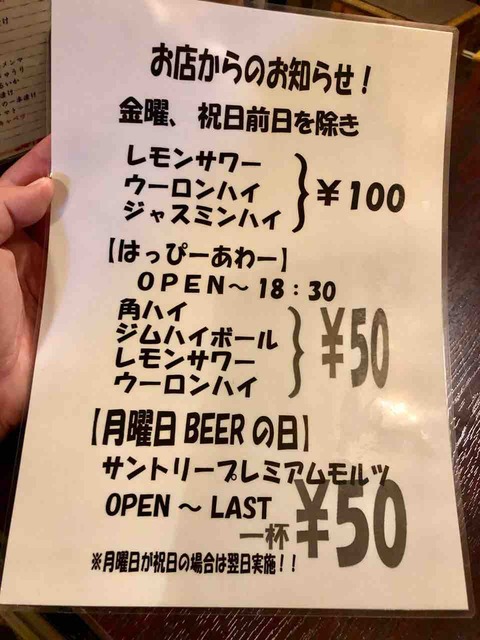 お店からのお知らせ！
金曜、祝日前日を除き
レモンサワー
ウーロンハイ
ジャスミンハイ
￥100
【はっぴーあわー】
OPEN～18：30
角ハイ
ジムハイボール
レモンサワー
ウーロンハイ
￥50
【月曜日 BEER の日】
サントリープレミアムモルツ
OPEN ～ LAST
一杯 ￥50
※月曜日が祝日の場合は翌日実施！！